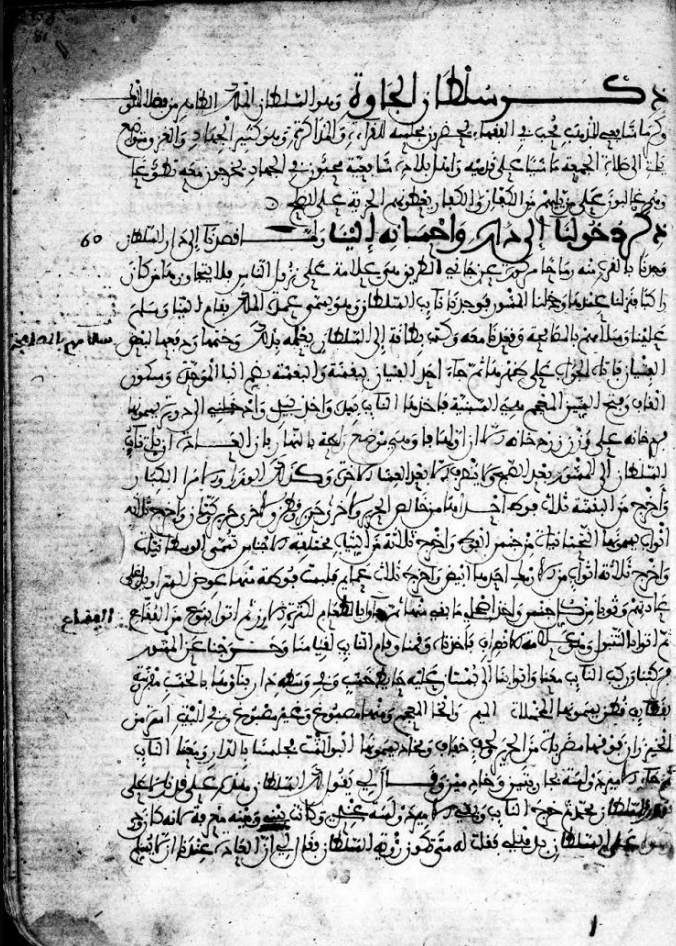 ذكر سلطان الجاوة وهو السلطان الملك الظاهر من فضلا الملوك
وكرمائهم شافعي المذهب محب في الفقهاء يحضرون مجلسه للقراءة والمذاكرة وهو كثير الجهاد والغزو متواضع
ياتي الى صلاة الجمعة ماشيا على قدميه واهل بلاده شافعية محبون في الجهاد يخرجون معه تطوعا
وهم غالبون على من يليهم من الكفار والكفار يعطونهم الجزية على الصلح
ذكر دخولنا الى داره واحسانه الينا ولما قصدنا الى دار السلطان 60
وجدنا بالقرب منه رماحا مركوزة عن جانبي الطريق هي علامة على نزول الناس فلا يتجاوزها من كان
راكبا فنزلنا عندها ودخلنا المشور فوجدنا نايب السلطان وهو يسمى عمدة الملك فقام الينا وسلم
علينا وسلامهم بالمصافحة وقعدنا معه وكتب بطاقة الى السلطان يعلمه بذلك وختمها ودفعها لبعض
سلامهم بالمصافحة
الفتيان فاتاه الجواب على ظهرها ثم جاء احد الفتيان ببقشة والبقشة بضم البا الموحدة وسكون
القاف وفتح الشين المعجم هي السبنية فاخذها النايب بيده واخذ بيدي وادخلني الى دويرة يسمونها
فردخانه على وزن زردخانه الا ان اولها فا وهي موضع راحته بالنهار فان العادة ان ياتي نايب
السلطان الى المشور بعد الصبح ولا ينصرف الا بعد العشا الاخرة وكذلك الوزرا والامرا الكبار
واخرج من البقشة ثلاث فوط احداها من خالص الحرير والاخرى حرير وقطن والاخرى حرير وكتان واخرج ثلاثة
اثواب يسمونها التحتانيات من جنس الفوط واخرج ثلاثة من الثياب مختلفة الاجناس تسمى الوسطانيات
واخرج ثلاثة اثواب من الارمك احدها ابيض واخرج ثلاث عمايم فلبست فوطة منها عوض السراويل على
عادتهم وثوبا من كل جنس واخذ اصحابي ما بقي منها ثم جاوا بالطعام اكثره الارز ثم اتوا بنوع من الفقاع
الفقاع
ثم اتوا بالتنبول وهو علامة الانصراف فاخذناه وقمنا وقام النايب لقيامنا وخرجنا عن المشور
فركبنا وركب النايب معنا واتوا بنا الى بستان عليه حايط خشب وفي وسطه دار بناوها بالخشب مفروشة
بقطايف قطن يسمونها المخملات بالميم والخا المعجم ومنها مصبوغ وغير مصبوغ وفي البيت اسرة من
الخيزران فوقها مضربات من الحرير ولحف خفاف ومخاد يسمونها البوالشت فجلسنا بالدار ومعنا النايب
ثم جاء الامير دولسة بجاريتين وخادمين وقال لي يقول لك السلطان هذه على قدرنا لا على
قدر السلطان محمد ثم خرج النايب وبقي الامير دولسة عندي وكانت بيني وبينه معرفة لانه كان ورد
رسولا على السلطان بدهلي فقلت له متى تكون روية السلطان فقال لي ان العادة عندنا ان لا يسلم